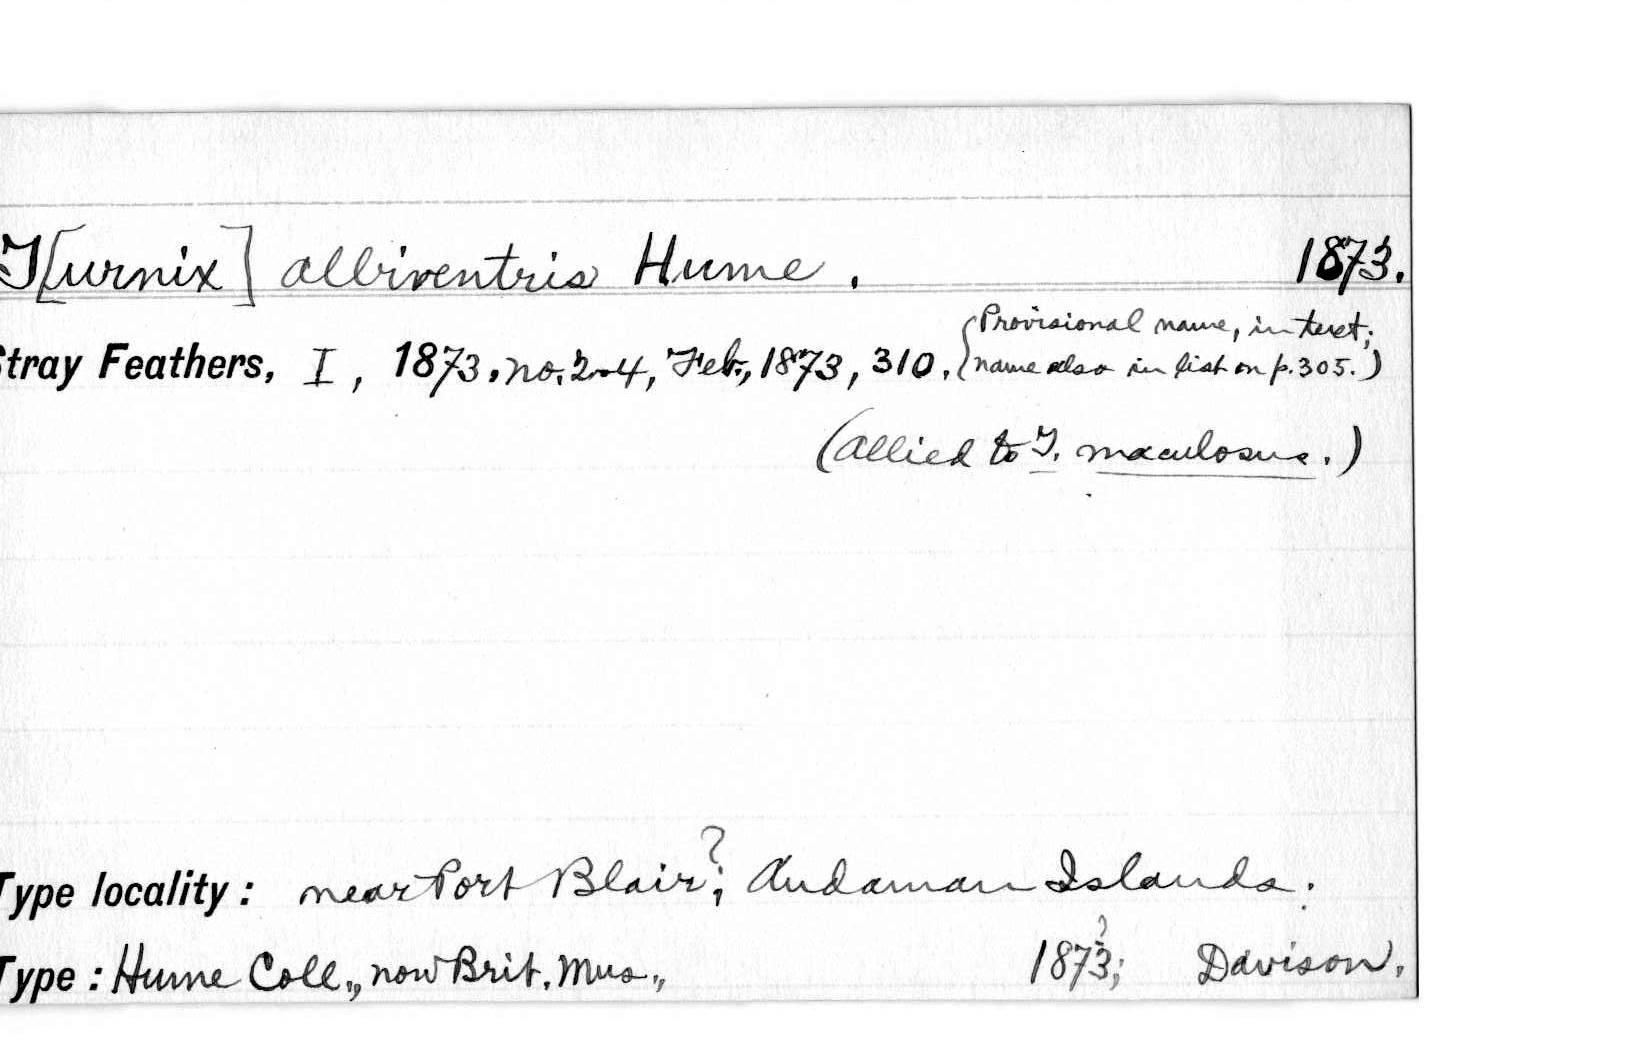 T[urnix] albiventris Hume. 1873.
(Provisional name, in text;
Stray Feathers, I, 1873, no. 2-4, Feb., 1873, 310. name also in list on p. 305.)
(allied to T. maculosus.)
?
Type locality: near Port Blair, Andaman Islands.
?
Type: Hume Coll., now Brit. Mus., 1873; Davison.